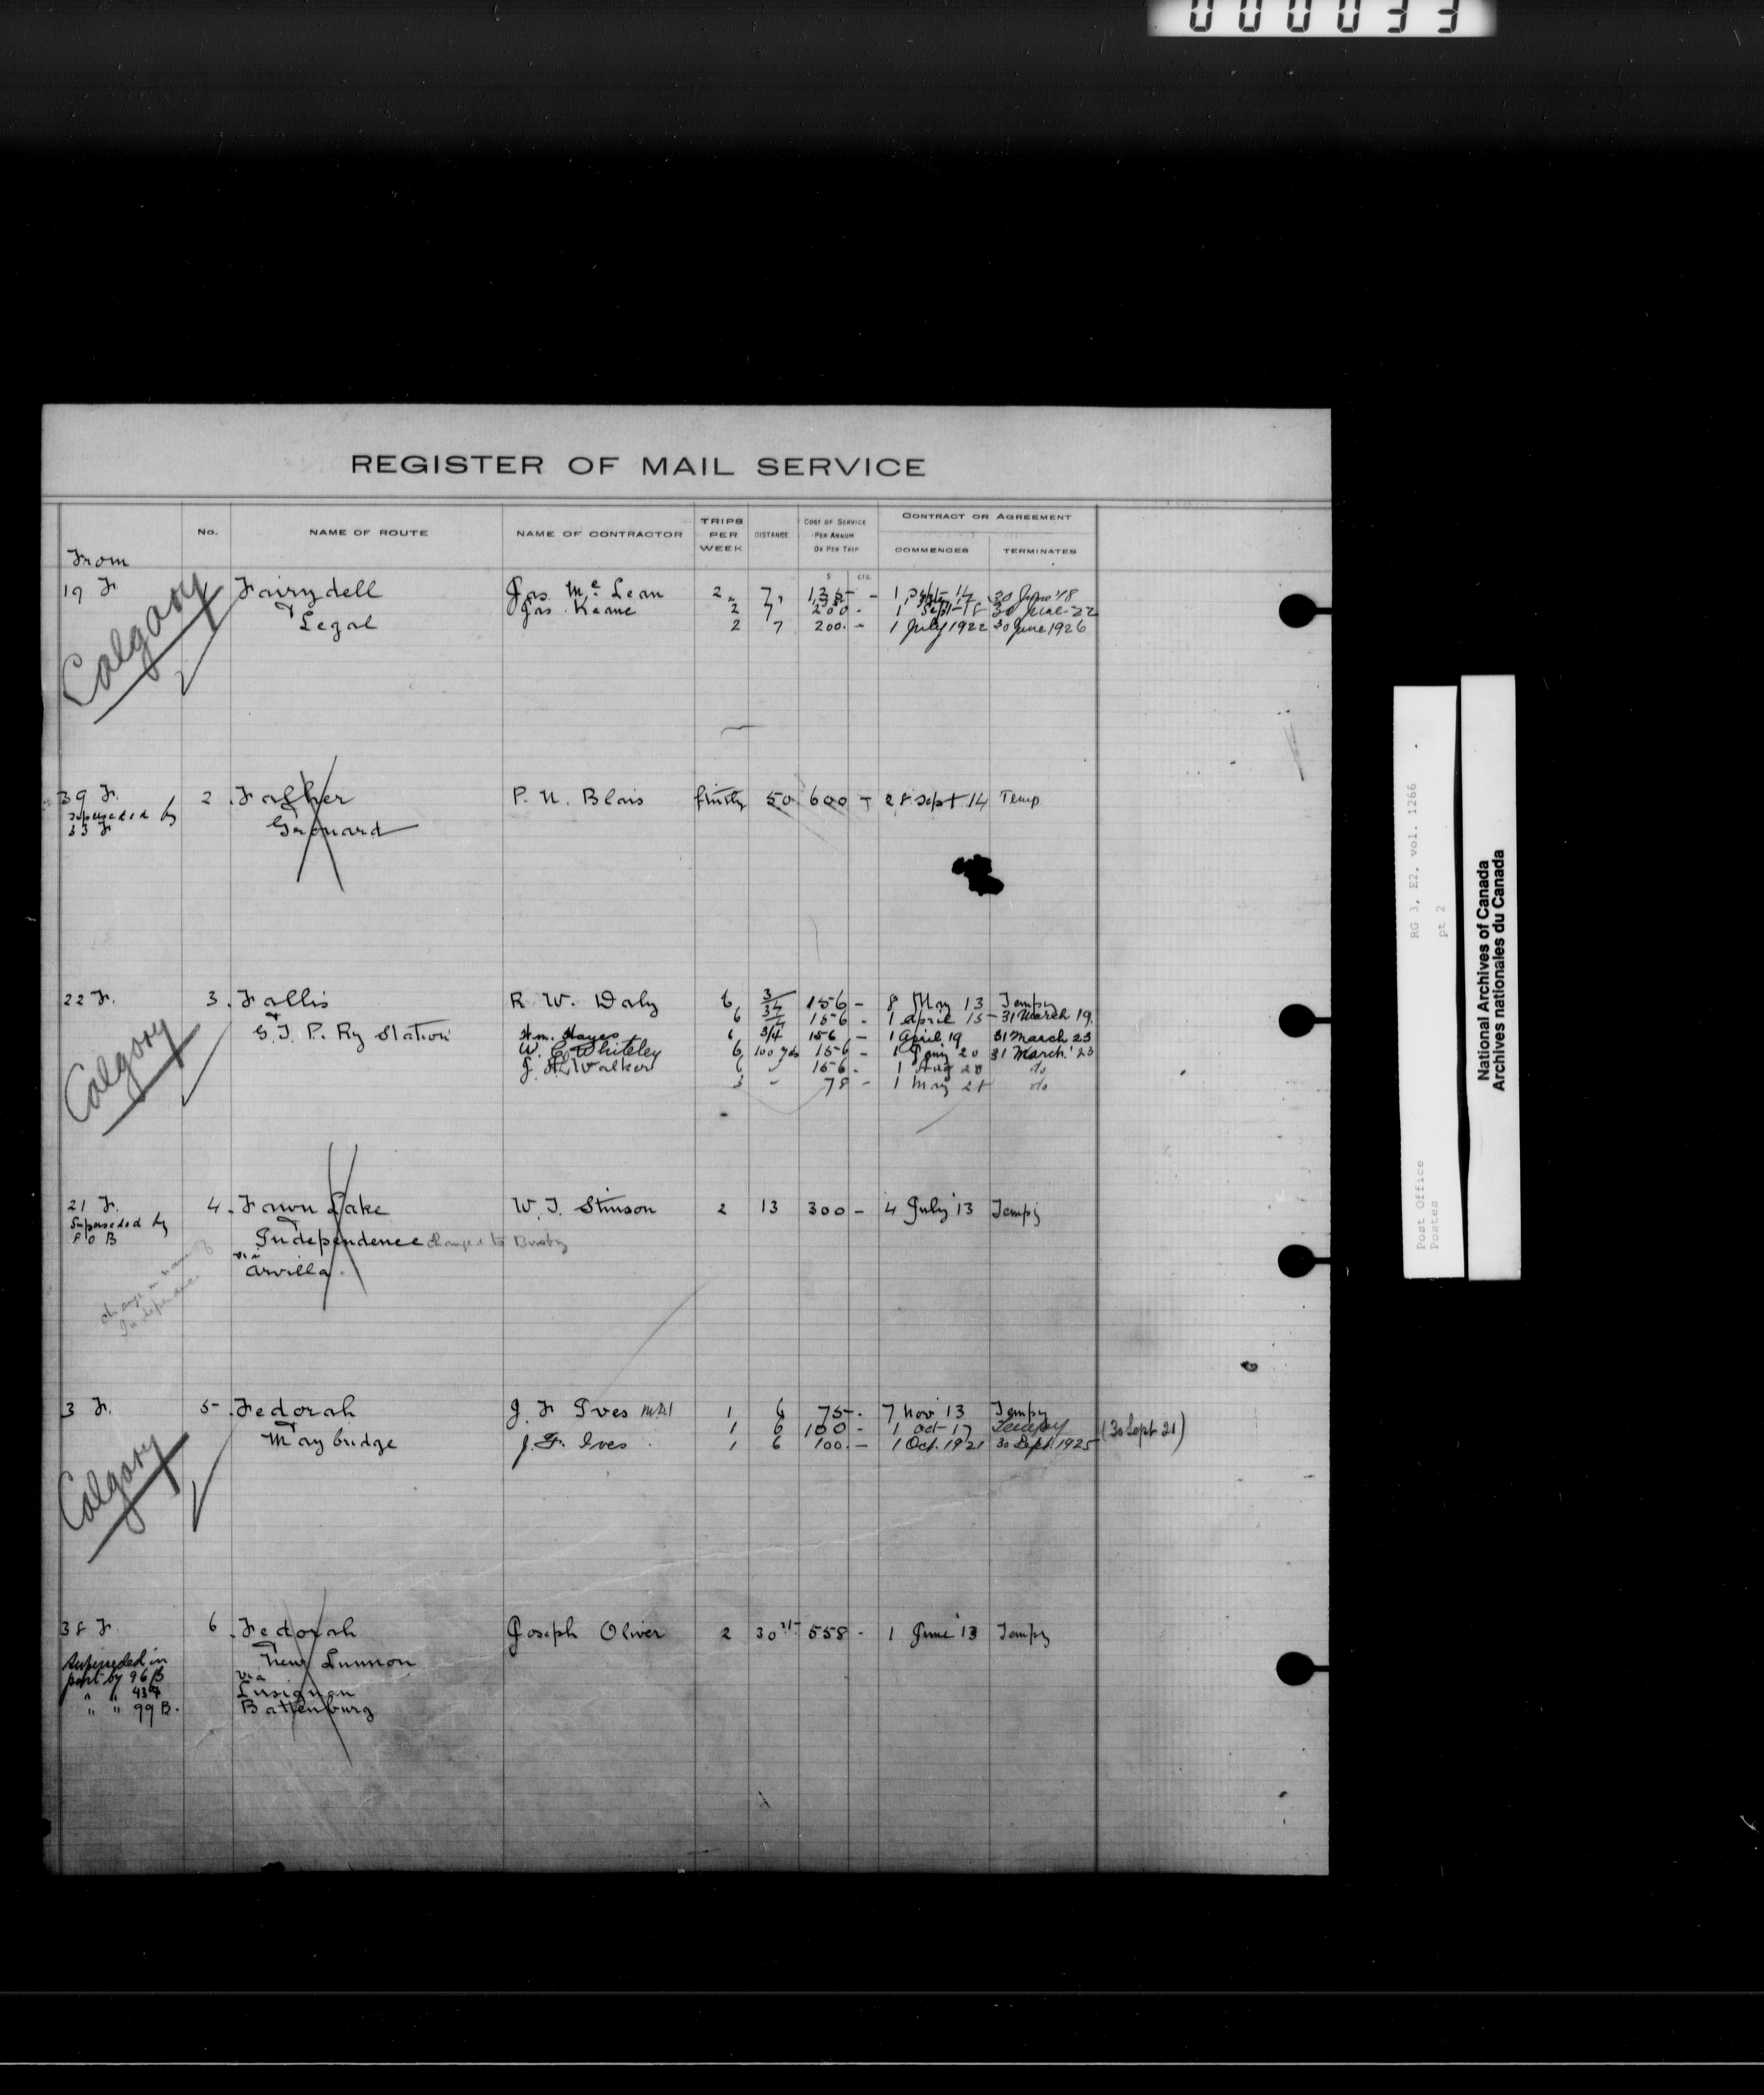 000033
REGISTER OF MAIL SERVICE
From No. NAME OF ROUTE NAME OF CONTRACTOR TRIPS PER WEEK DISTANCE COST OF SERVICE PER ANNUM OR PER TRIP $ CTS. CONTRACT OR AGREEMENT COMMENCES TERMINATES
19 F Fairydell Jas. McLean 2 7 1 Sept 14 30 June 18
& Jas. Keane 2 7 200 - 1 Sept 18 30 June 22
Legal 2 7 200. - 1 July 1922 30 June 1926
Calgary
39 F. 2. Falher P. N. Blais 50 600 - 28 Sept 14 Temp
Superseded by &
33 F Grouard
22 F. 3. Fallis R. W. Daly 6 3/4 156 - 8 May 13 Tempy
& 6 3/4 156 - 1 April 15 - 31 March 19.
G. T. P. Ry Station Wm. Hayes 6 3/4 156 - 1 April 19 31 March 23
W. C. Whiteley 6 100 yds 156 - 1 20 31 March '23
J. Walker 6 " 156 - 1 Aug 20 do
3 " 78 - 1 May 21 do
Calgary
21 F. 4. Fawn Lake W. J. Stinson 2 13 300 - 4 July 13 Tempy
Superseded by &
80 B Independence changed to Busby
via
Arvilla.
change in name of
Independence
3 F. 5. Fedorah J. F. Ives 1 6 75 - 7 Nov 13 Tempy
& 1 6 100 - 1 Oct 17 Tempy (30 Sept 21)
Maybridge J. F. Ives 1 6 100. - 1 Oct. 1921 30 Sept. 1925
Calgary
38 F. 6. Fedorah Joseph Oliver 2 30 558 - 1 June 13 Tempy
&
Superseded in New Lunnon
part by 96 B via
" " 43 F Lusignan
" " 99 B. Battenburg
RG 3, E2, vol. 1266
pt 2
Post Office
Postes
National Archives of Canada
Archives nationales du Canada